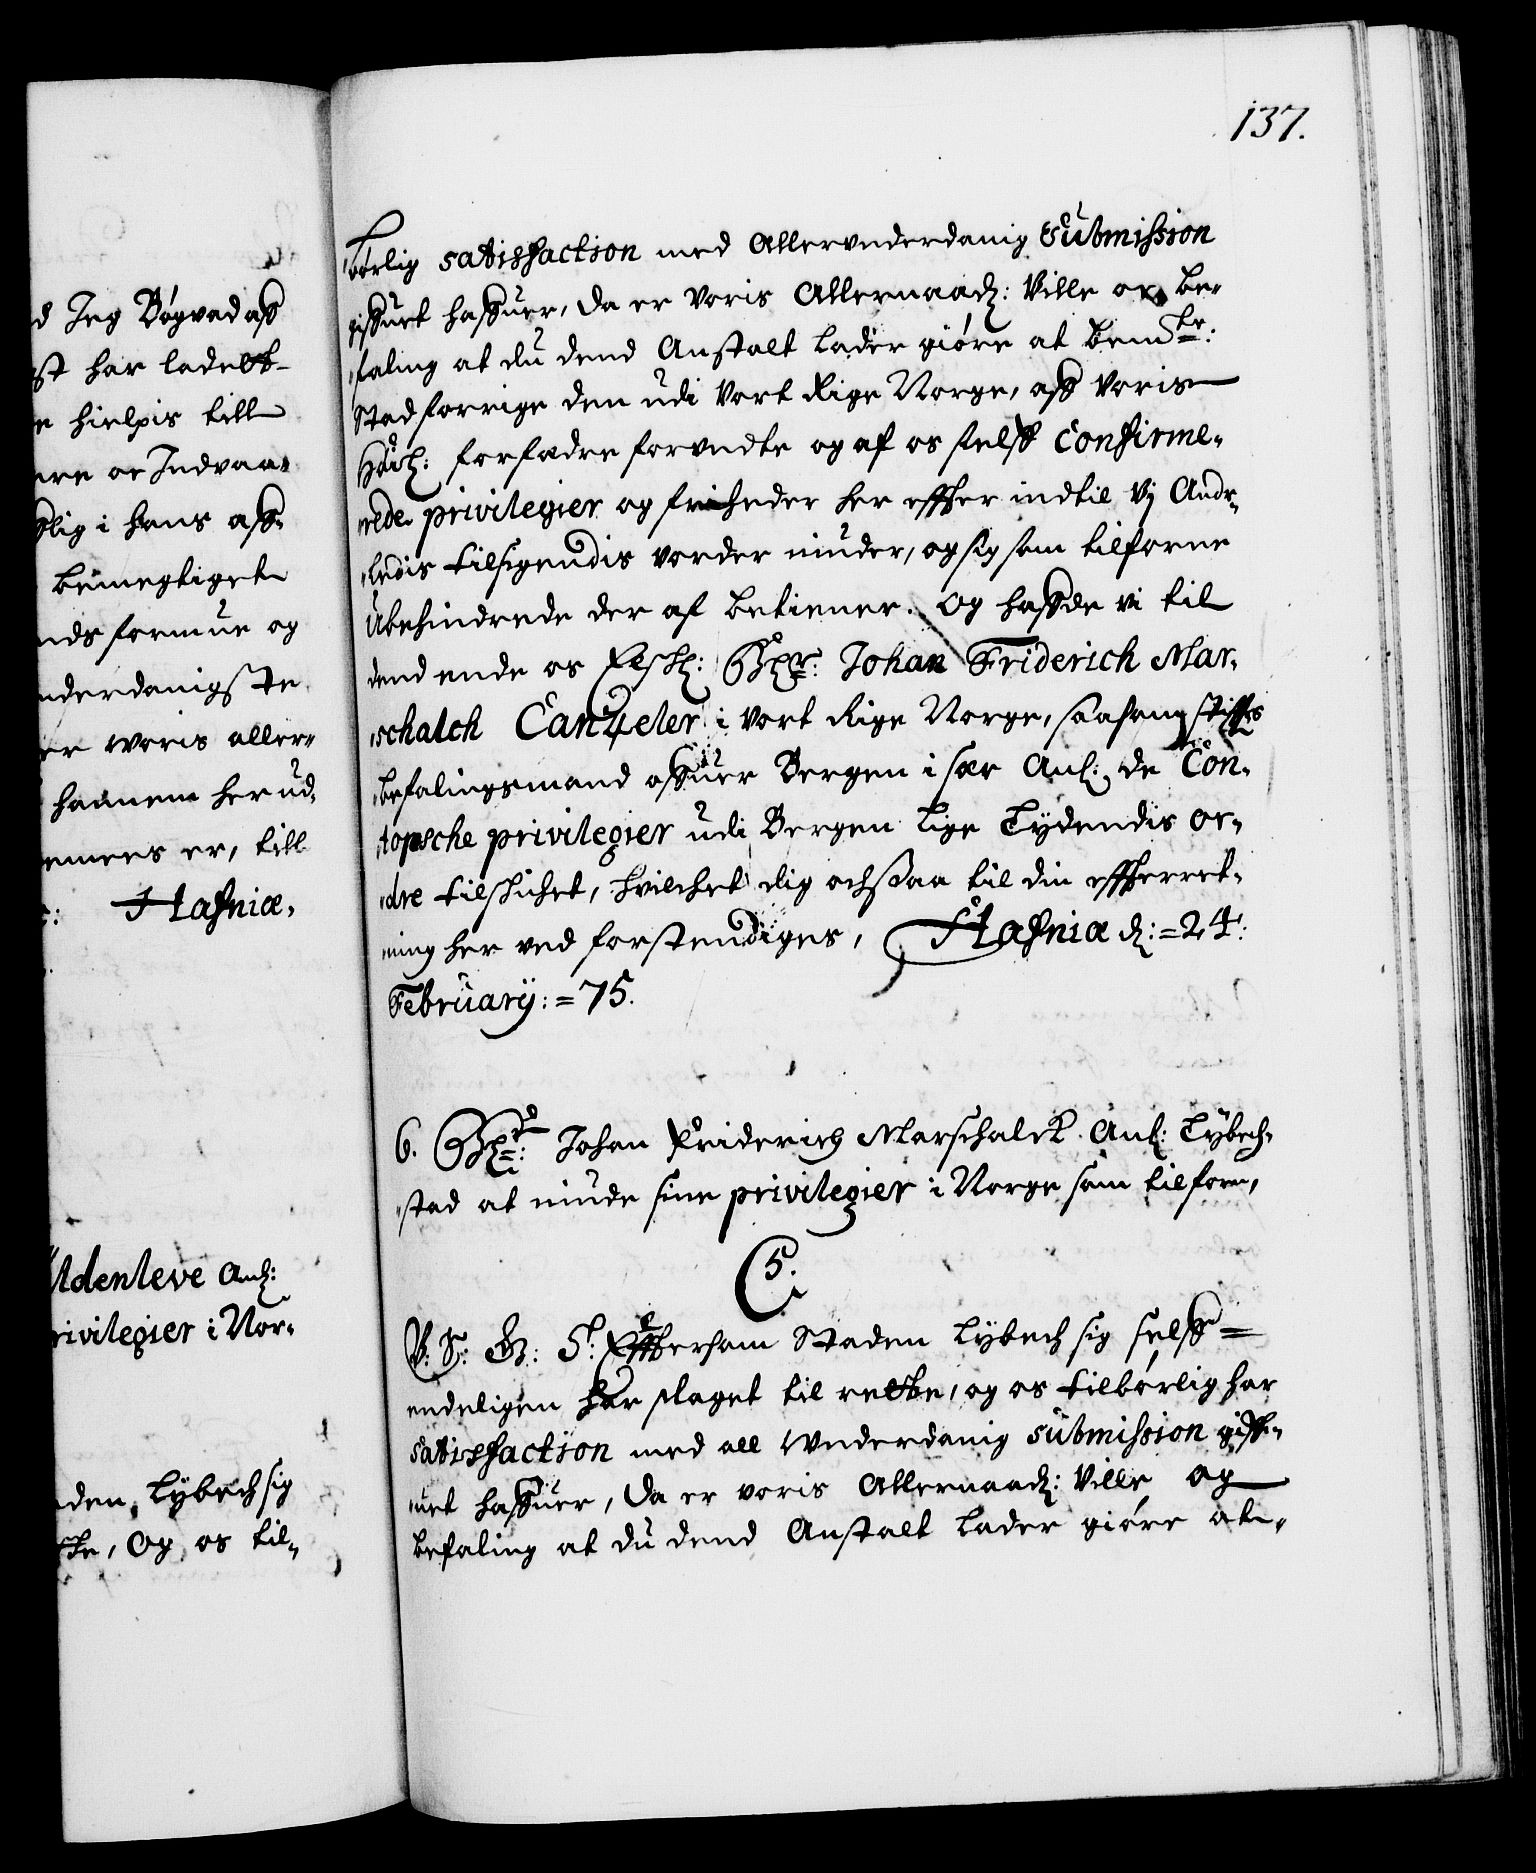 137.
børlig satisfaction med Allerunderdanig Submission
gifuet hafuer, da er Voris Allernaadz: Ville oc be-
faling at du dend Anstalt lader giøre at bemte:
Stad forrige den udi Vort Rige Norge, aff Voris
Høilz: forfædre forundte og af os selff Confirme-
rede privilegier og friheder her effter indtil Vj Andr-
ledis tilsigendis vorder niuder, og sig som tilforne
Ubehindrede der af betiener. Og hafde vi til
dend ende os Elskz: Johan Friderich Mar-
schalch Cantzeler i Vort Rige Norge, saasom stiffts
befalingsmand ofuer Bergen i sær Anl: de Con-
torsche privilegier udi Bergen lige Lydendis or-
dre tilskichet, hvilchet dig ochsaa til din effterret-
ning her ved forstendiges, Hafniæ d: = 24:
February: = 75.
6. Johan Friderich Marschalck. Anl: Lybech-
stad at niude sine privilegier i Norge som tilforn,
C 5.
V: S: G: T: Effthersom Staden Lybech sig selff =
endeligen har slaget til rette, og os tilbørlig har
Satisfaction med all Underdanig submission giff-
uet hafuer, da er voris Allernaadz: Ville og
befaling at du dend Anstalt lader giøre at-
d Jeg Bøgvad aff
st har ladett
e hielpis till
ere oc Indvaa-
lig i hans aff-
bemegtiget
nds formue og
nderdanigste
er Voris aller-
hannem her ud-
emmes er, till
Hafniæ,
ldenleve Anl:
rivilegier i Nor-
den Lybech sig
te, Og os til-